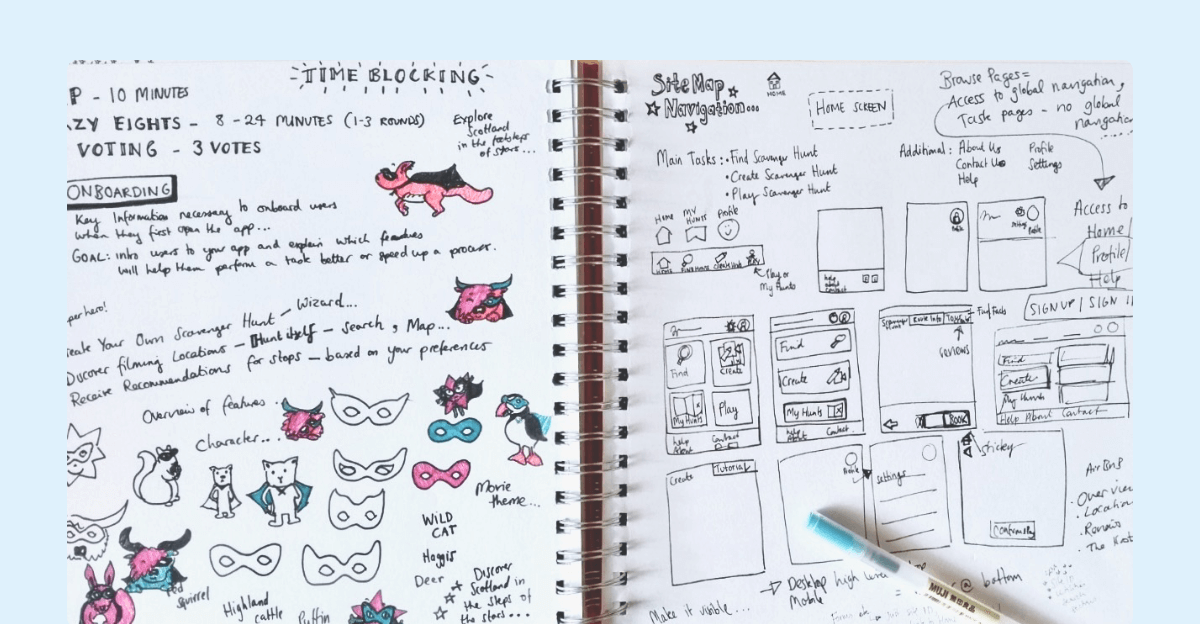 TIME BLOCKING
P - 10 MINUTES
ZY EIGHTS - 8 - 24 MINUTES (1-3 ROUNDS)
VOTING - 3 VOTES
Explore
Scotland
in the footsteps
of stars...
ONBOARDING
Key Information necessary to onboard users
when they first open the app...
GOAL: intro users to your app and explain which features
will help them perform a task better or speed up a process.
perhero!
eate Your Own Scavenger Hunt - Wizard...
Discover filming Locations - Hunt itself - Search, Map...
Receive Recommendations for stops - based on your preferences
Overview of features...
Character...
Movie
theme...
WILD
CAT
Haggis
Deer
Discover
Scotland in
the steps of
the stars...
squirrel
Highland
cattle
Puffin
Site Map
Navigation...
HOME
HOME SCREEN
Browse Pages =
Access to global navigation,
Task pages - no global
navigation
Main Tasks: • Find Scavenger Hunt
• Create Scavenger Hunt
• Play Scavenger Hunt
Additional: About Us
Contact Us
Help
Profile
Settings
Home
My
Hunts
Profile
Play or
My Hunts
help
about
contact
Profile
settings
Profile
Access to
Home
Profile/
Help
SIGN UP | SIGN I
Find
Create
My Hunts
Play
help
About
Contact
Find
Create
My Hunts
help
About
Contact
Route Info
Fun Facts
reviews
BOOK
Find
Create
My Hunts
Help About Contact
Create
Tutorial
Profile
settings
sticky
Overview
Location
Reviews
The Host
Desktop high level
Mobile
@ bottom
Make it visible...
MUJI MORA